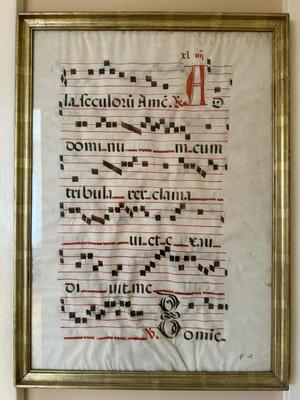 la seculorũ Amẽ. R. A D
domi nu m cum
tribula rer clama
ui et e xau
di uit me
V. Domic